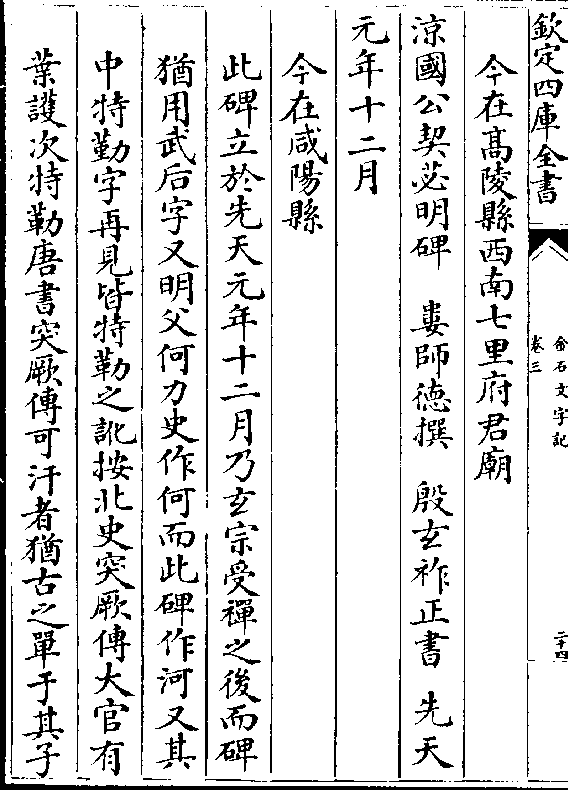 欽定四庫全書
金石文字記
卷三
二十四
今在髙陵縣西南七里府君廟
涼國公契苾明碑　婁師德撰　殷玄祚正書　先天
元年十二月
今在咸陽縣
此碑立於先天元年十二月乃玄宗受禪之後而碑
猶用武后字又明父何力史作何而此碑作河又其
中特勤字再見皆特勒之訛按北史突厥傳大官有
葉護次特勒唐書突厥傳可汗者猶古之單于其子